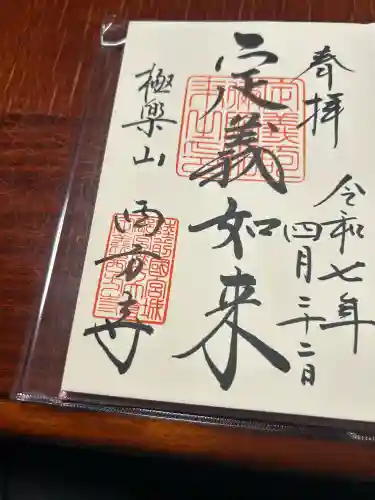 奉拝
令和七年
四月二十二日
定義如来
極楽山
西方寺